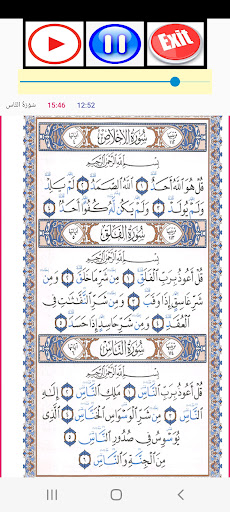 Exit
سورة الناس 15:46 12:52
سُورَةُ الإِخْلَاصِ
بِسْمِ اللَّهِ الرَّحْمَٰنِ الرَّحِيمِ
قُلْ هُوَ اللَّهُ أَحَدٌ ١ اللَّهُ الصَّمَدُ ٢ لَمْ يَلِدْ
وَلَمْ يُولَدْ ٣ وَلَمْ يَكُن لَّهُ كُفُوًا أَحَدٌ ٤
سُورَةُ الفَلَقِ
بِسْمِ اللَّهِ الرَّحْمَٰنِ الرَّحِيمِ
قُلْ أَعُوذُ بِرَبِّ الْفَلَقِ ١ مِن شَرِّ مَا خَلَقَ ٢ وَمِن
شَرِّ غَاسِقٍ إِذَا وَقَبَ ٣ وَمِن شَرِّ النَّفَّٰثَٰتِ فِي
الْعُقَدِ ٤ وَمِن شَرِّ حَاسِدٍ إِذَا حَسَدَ ٥
سُورَةُ النَّاسِ
بِسْمِ اللَّهِ الرَّحْمَٰنِ الرَّحِيمِ
قُلْ أَعُوذُ بِرَبِّ النَّاسِ ١ مَلِكِ النَّاسِ ٢ إِلَٰهِ
النَّاسِ ٣ مِن شَرِّ الْوَسْوَاسِ الْخَنَّاسِ ٤ الَّذِي
يُوَسْوِسُ فِي صُدُورِ النَّاسِ ٥
مِنَ الْجِنَّةِ وَالنَّاسِ ٦